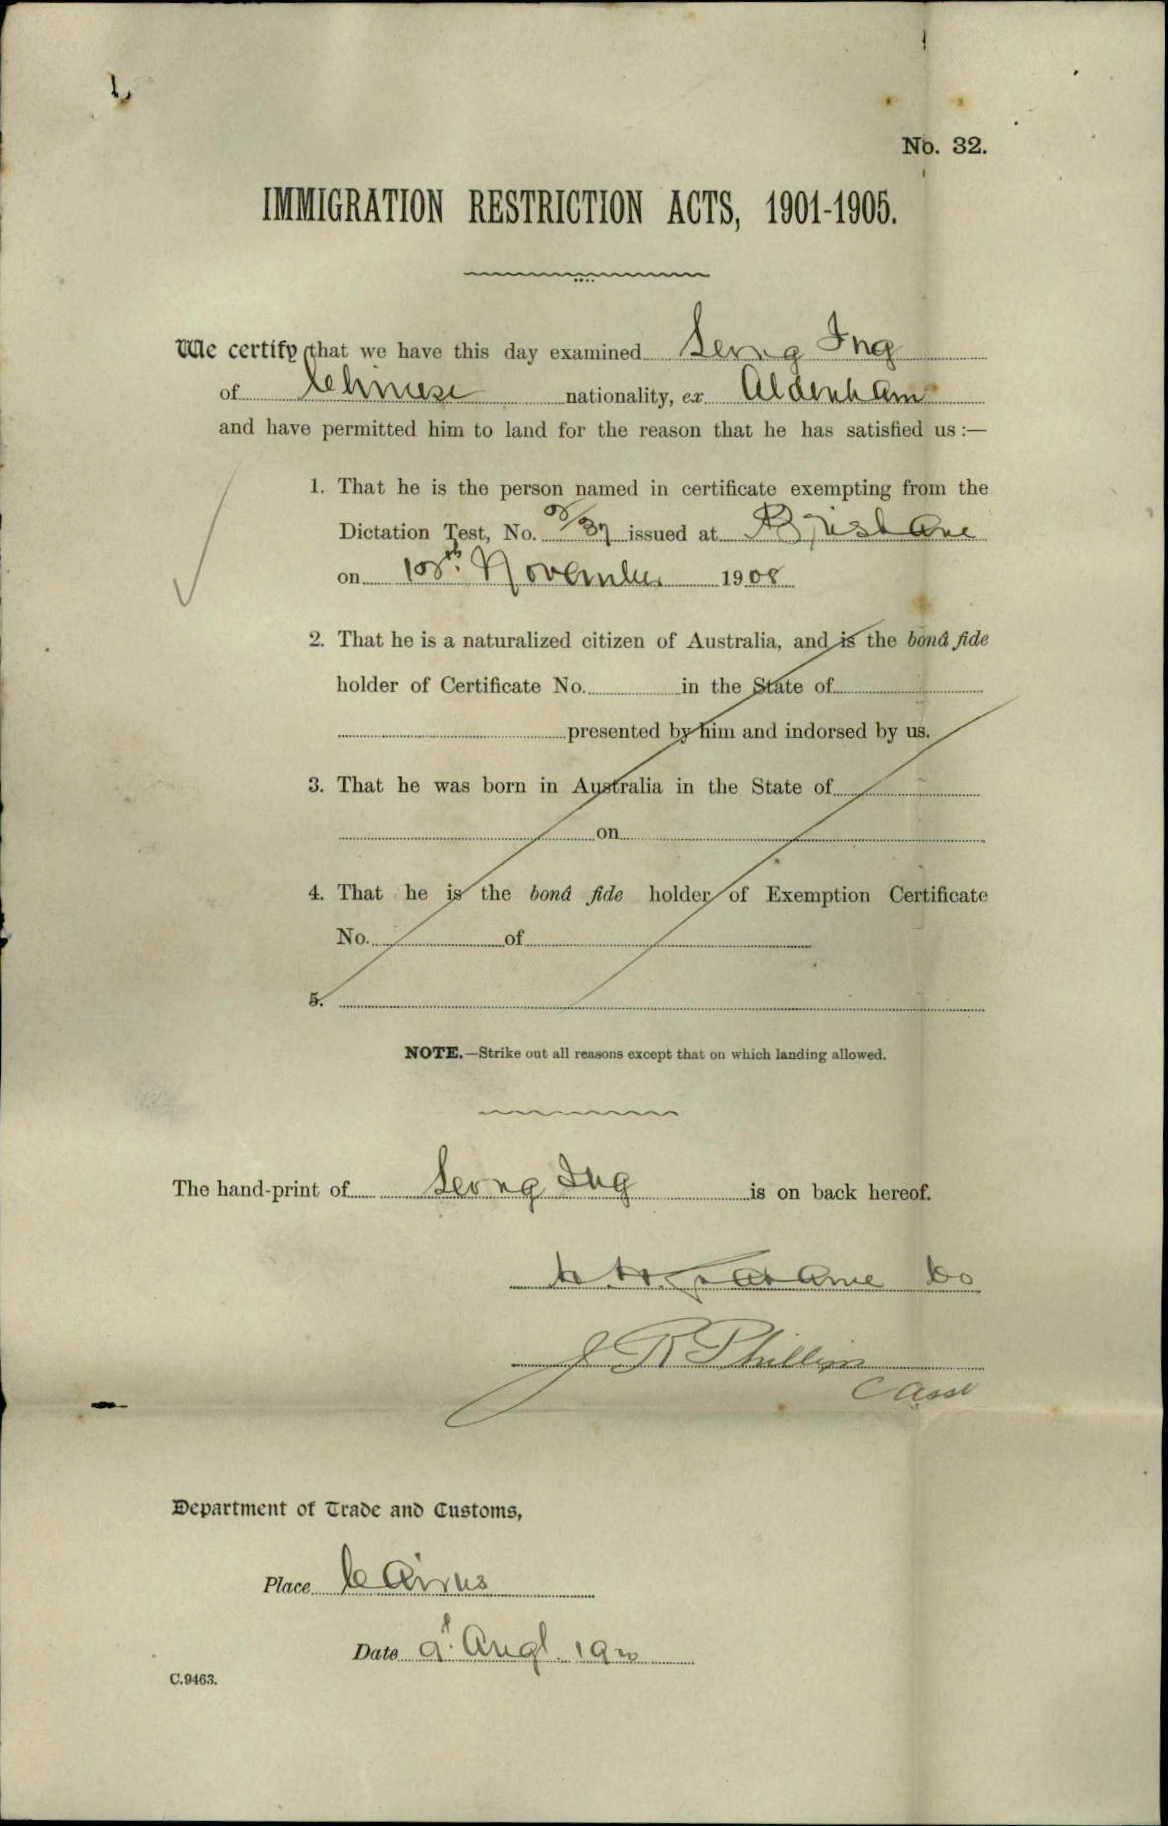 No. 32.
IMMIGRATION RESTRICTION ACTS, 1901-1905.
We certify that we have this day examined Leong Ing
of Chinese nationality, ex Aldenham
and have permitted him to land for the reason that he has satisfied us :—
1. That he is the person named in certificate exempting from the
Dictation Test, No. 08/37 issued at Brisbane
on November 1908
2. That he is a naturalized citizen of Australia, and is the bonâ fide
holder of Certificate No. in the State of
presented by him and indorsed by us.
3. That he was born in Australia in the State of
on
4. That he is the bonâ fide holder of Exemption Certificate
No. of
5.
NOTE.—Strike out all reasons except that on which landing allowed.
The hand-print of Leong Ing is on back hereof.
J R Phillips
Department of Trade and Customs,
Place Cairns
Date
C.9463.